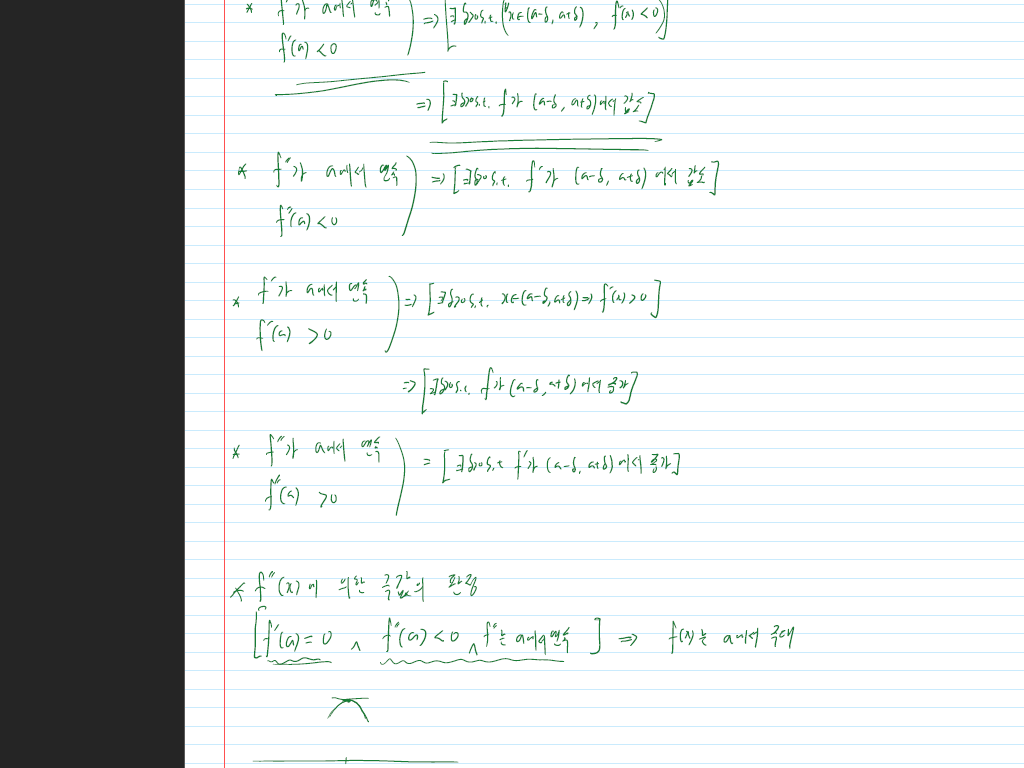 * f'가 a에서 연속 ⇒ [∃δ>0 s.t. (∀x∈(a-δ, a+δ), f'(x) < 0)]
f'(a) < 0
⇒ [∃δ>0 s.t. f가 (a-δ, a+δ)에서 감소]
* f''가 a에서 연속 ⇒ [∃δ>0 s.t. f'가 (a-δ, a+δ)에서 감소]
f''(a) < 0
* f'가 a에서 연속 ⇒ [∃δ>0 s.t. x∈(a-δ, a+δ) ⇒ f'(x) > 0]
f'(a) > 0
⇒ [∃δ>0 s.t. f가 (a-δ, a+δ)에서 증가]
* f''가 a에서 연속 = [∃δ>0 s.t f'가 (a-δ, a+δ)에서 증가]
f''(a) > 0
* f''(x)에 의한 극값의 판정
[f'(a) = 0 ∧ f''(a) < 0 ∧ f''는 a에서 연속] ⇒ f(x)는 a에서 극대